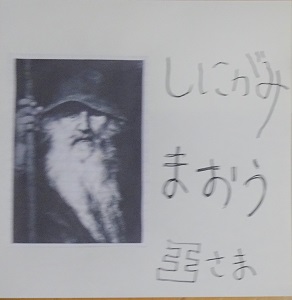 しにがみ
まおう
弱さま